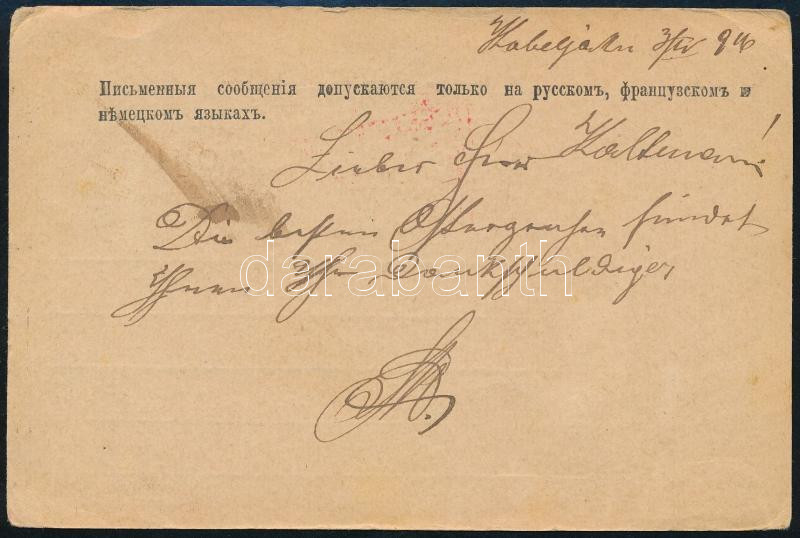 Kobeljaki 3/IV 96
Письменныя сообщенія допускаются только на русскомъ, французскомъ и
нѣмецкомъ языкахъ.
Lieber Herr
Die besten Ostergrüße sendet
Ihnen Ihr Dankschuldiger
darabanth